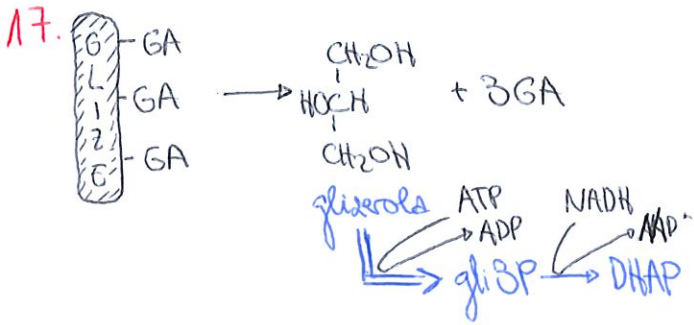 17.
G L I Z E
GA
GA
GA
CH₂OH
HOCH
CH₂OH
+ 3GA
glizerola
ATP
ADP
NADH
NAD⁺
gli3P
DHAP